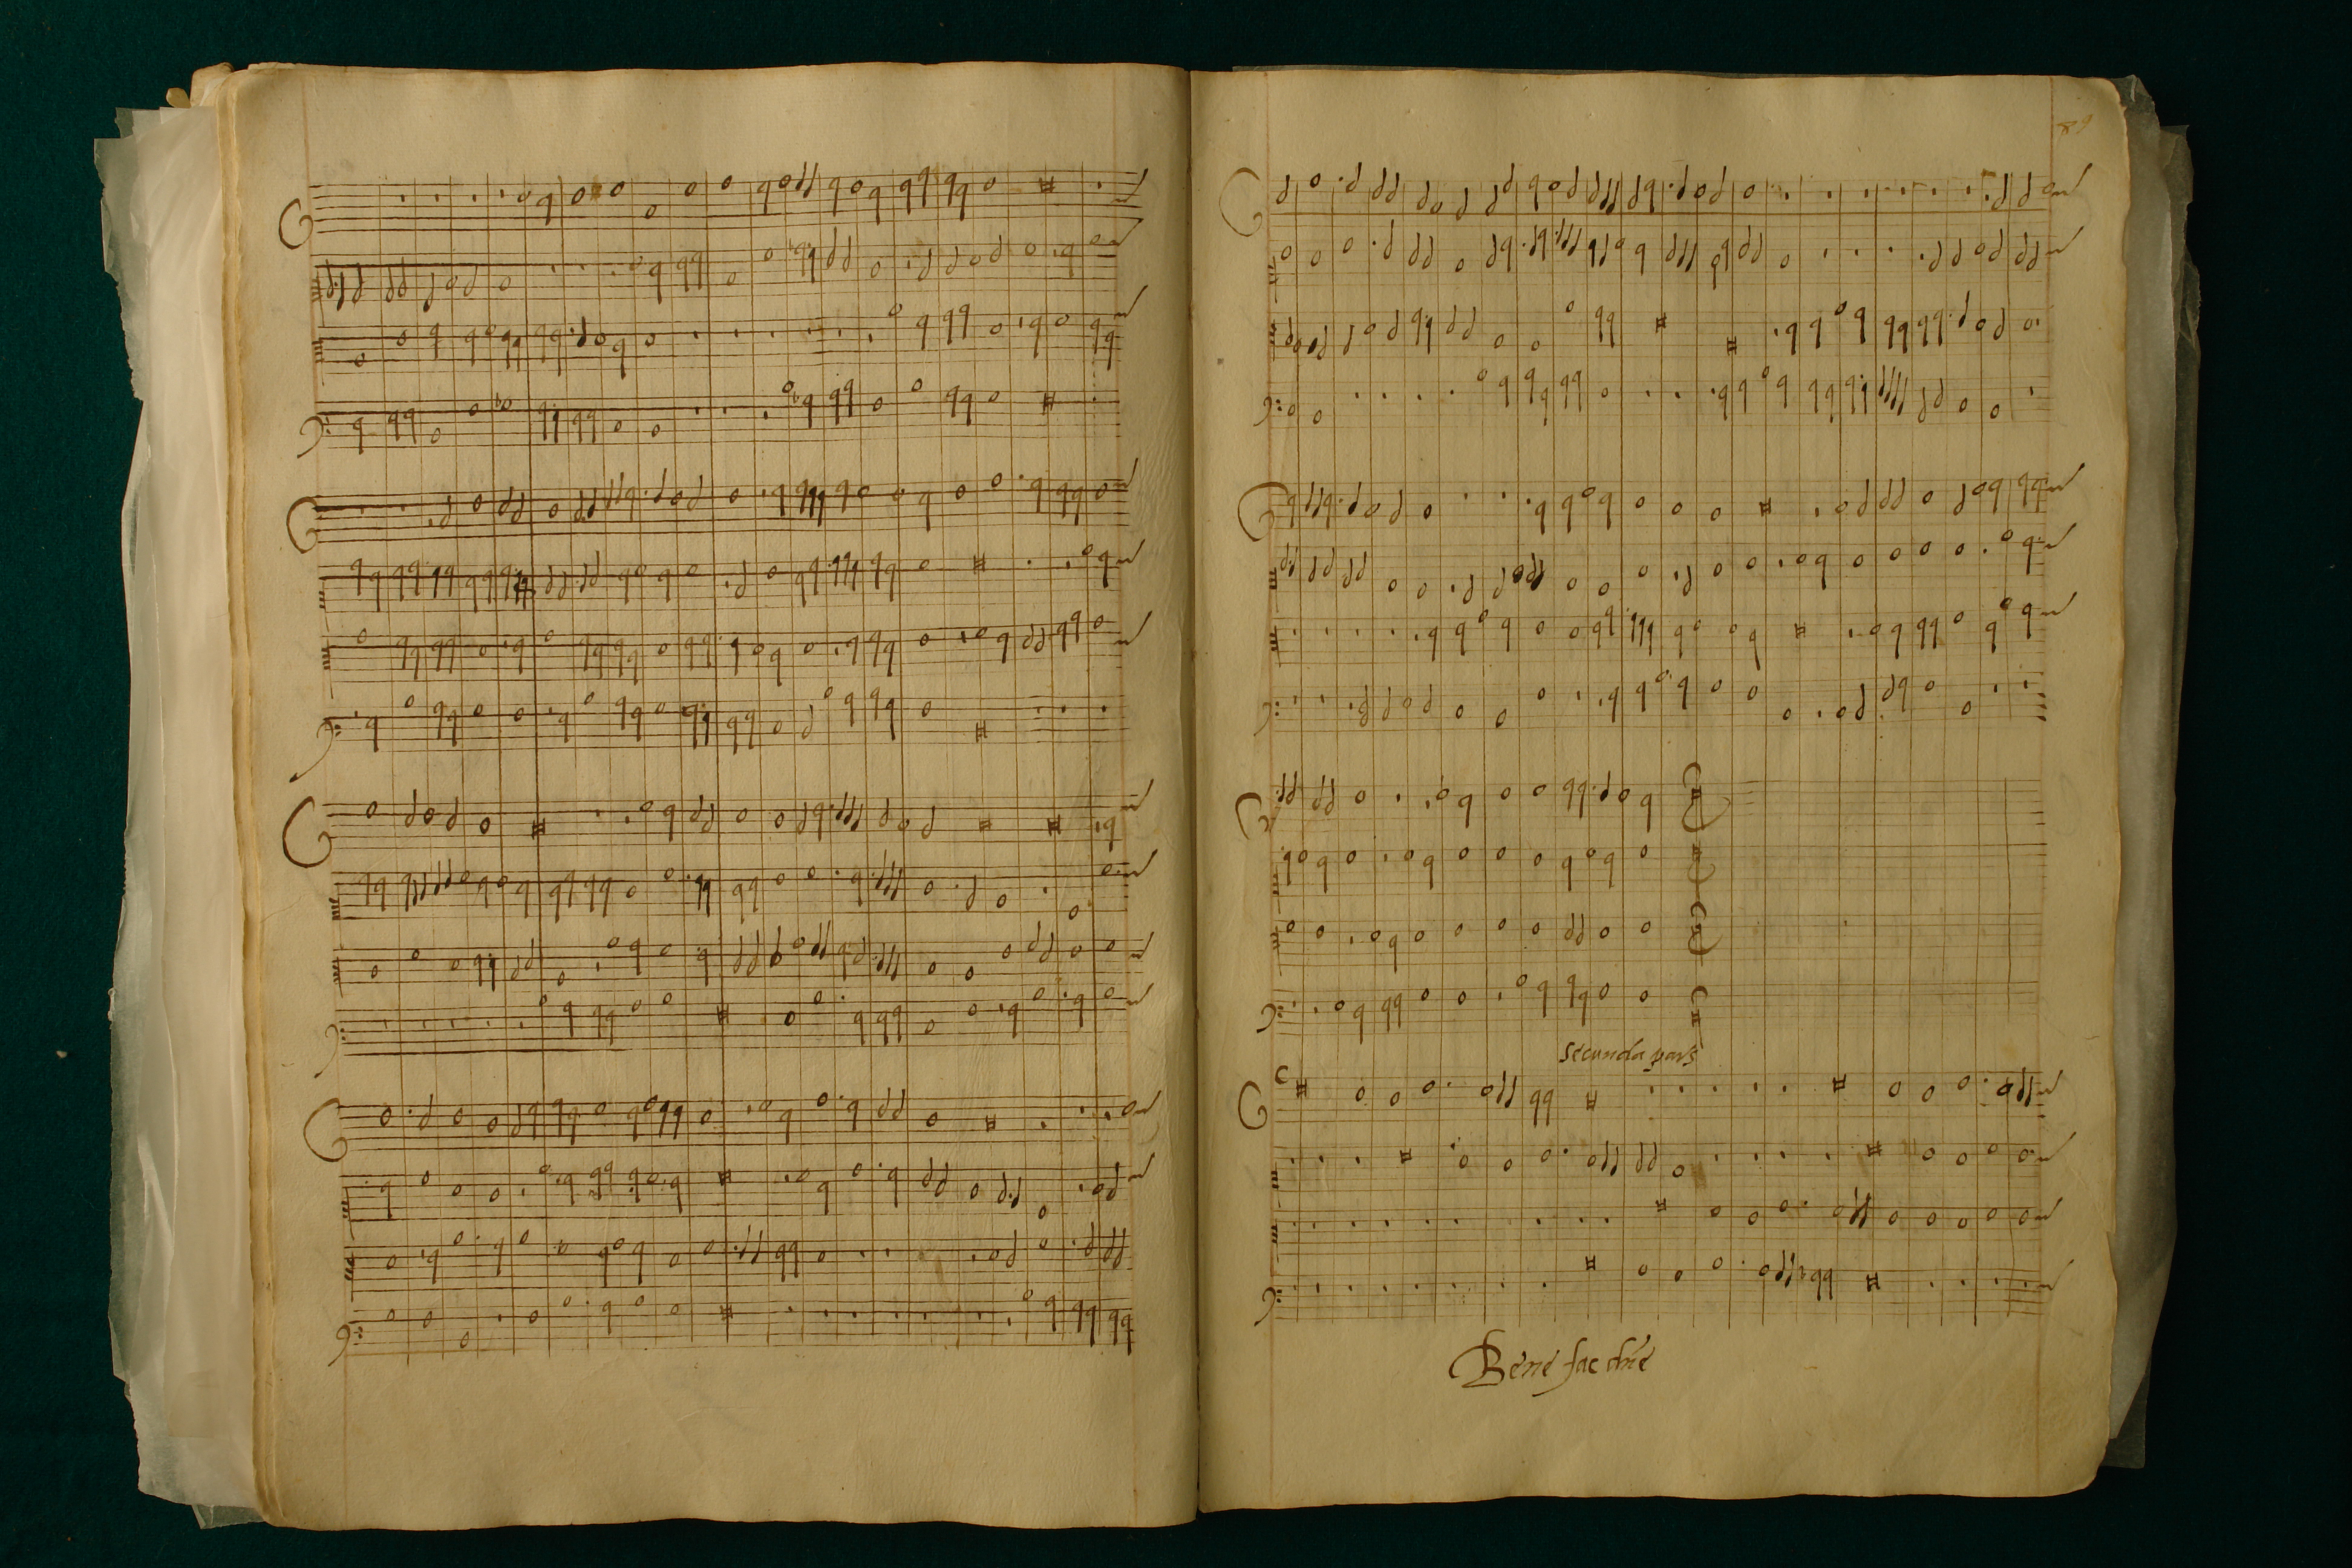 89
Secunda pars
Bene fac dñe